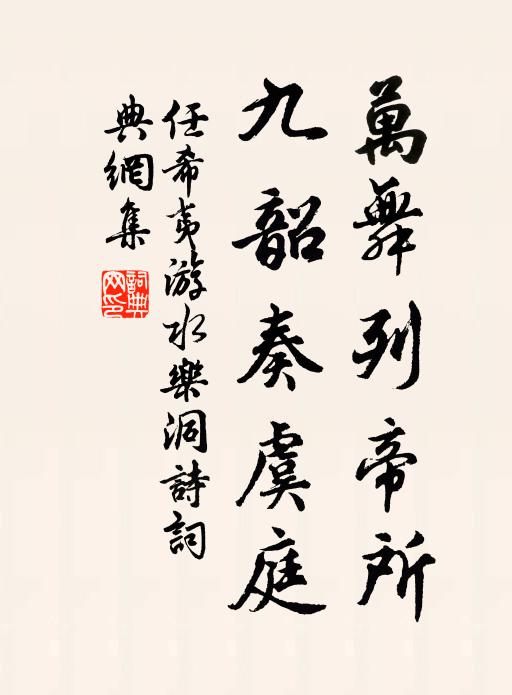 萬舞列帝所
九韶奏虞庭
任希夷游水樂洞詩詞
典網集
詞典網印